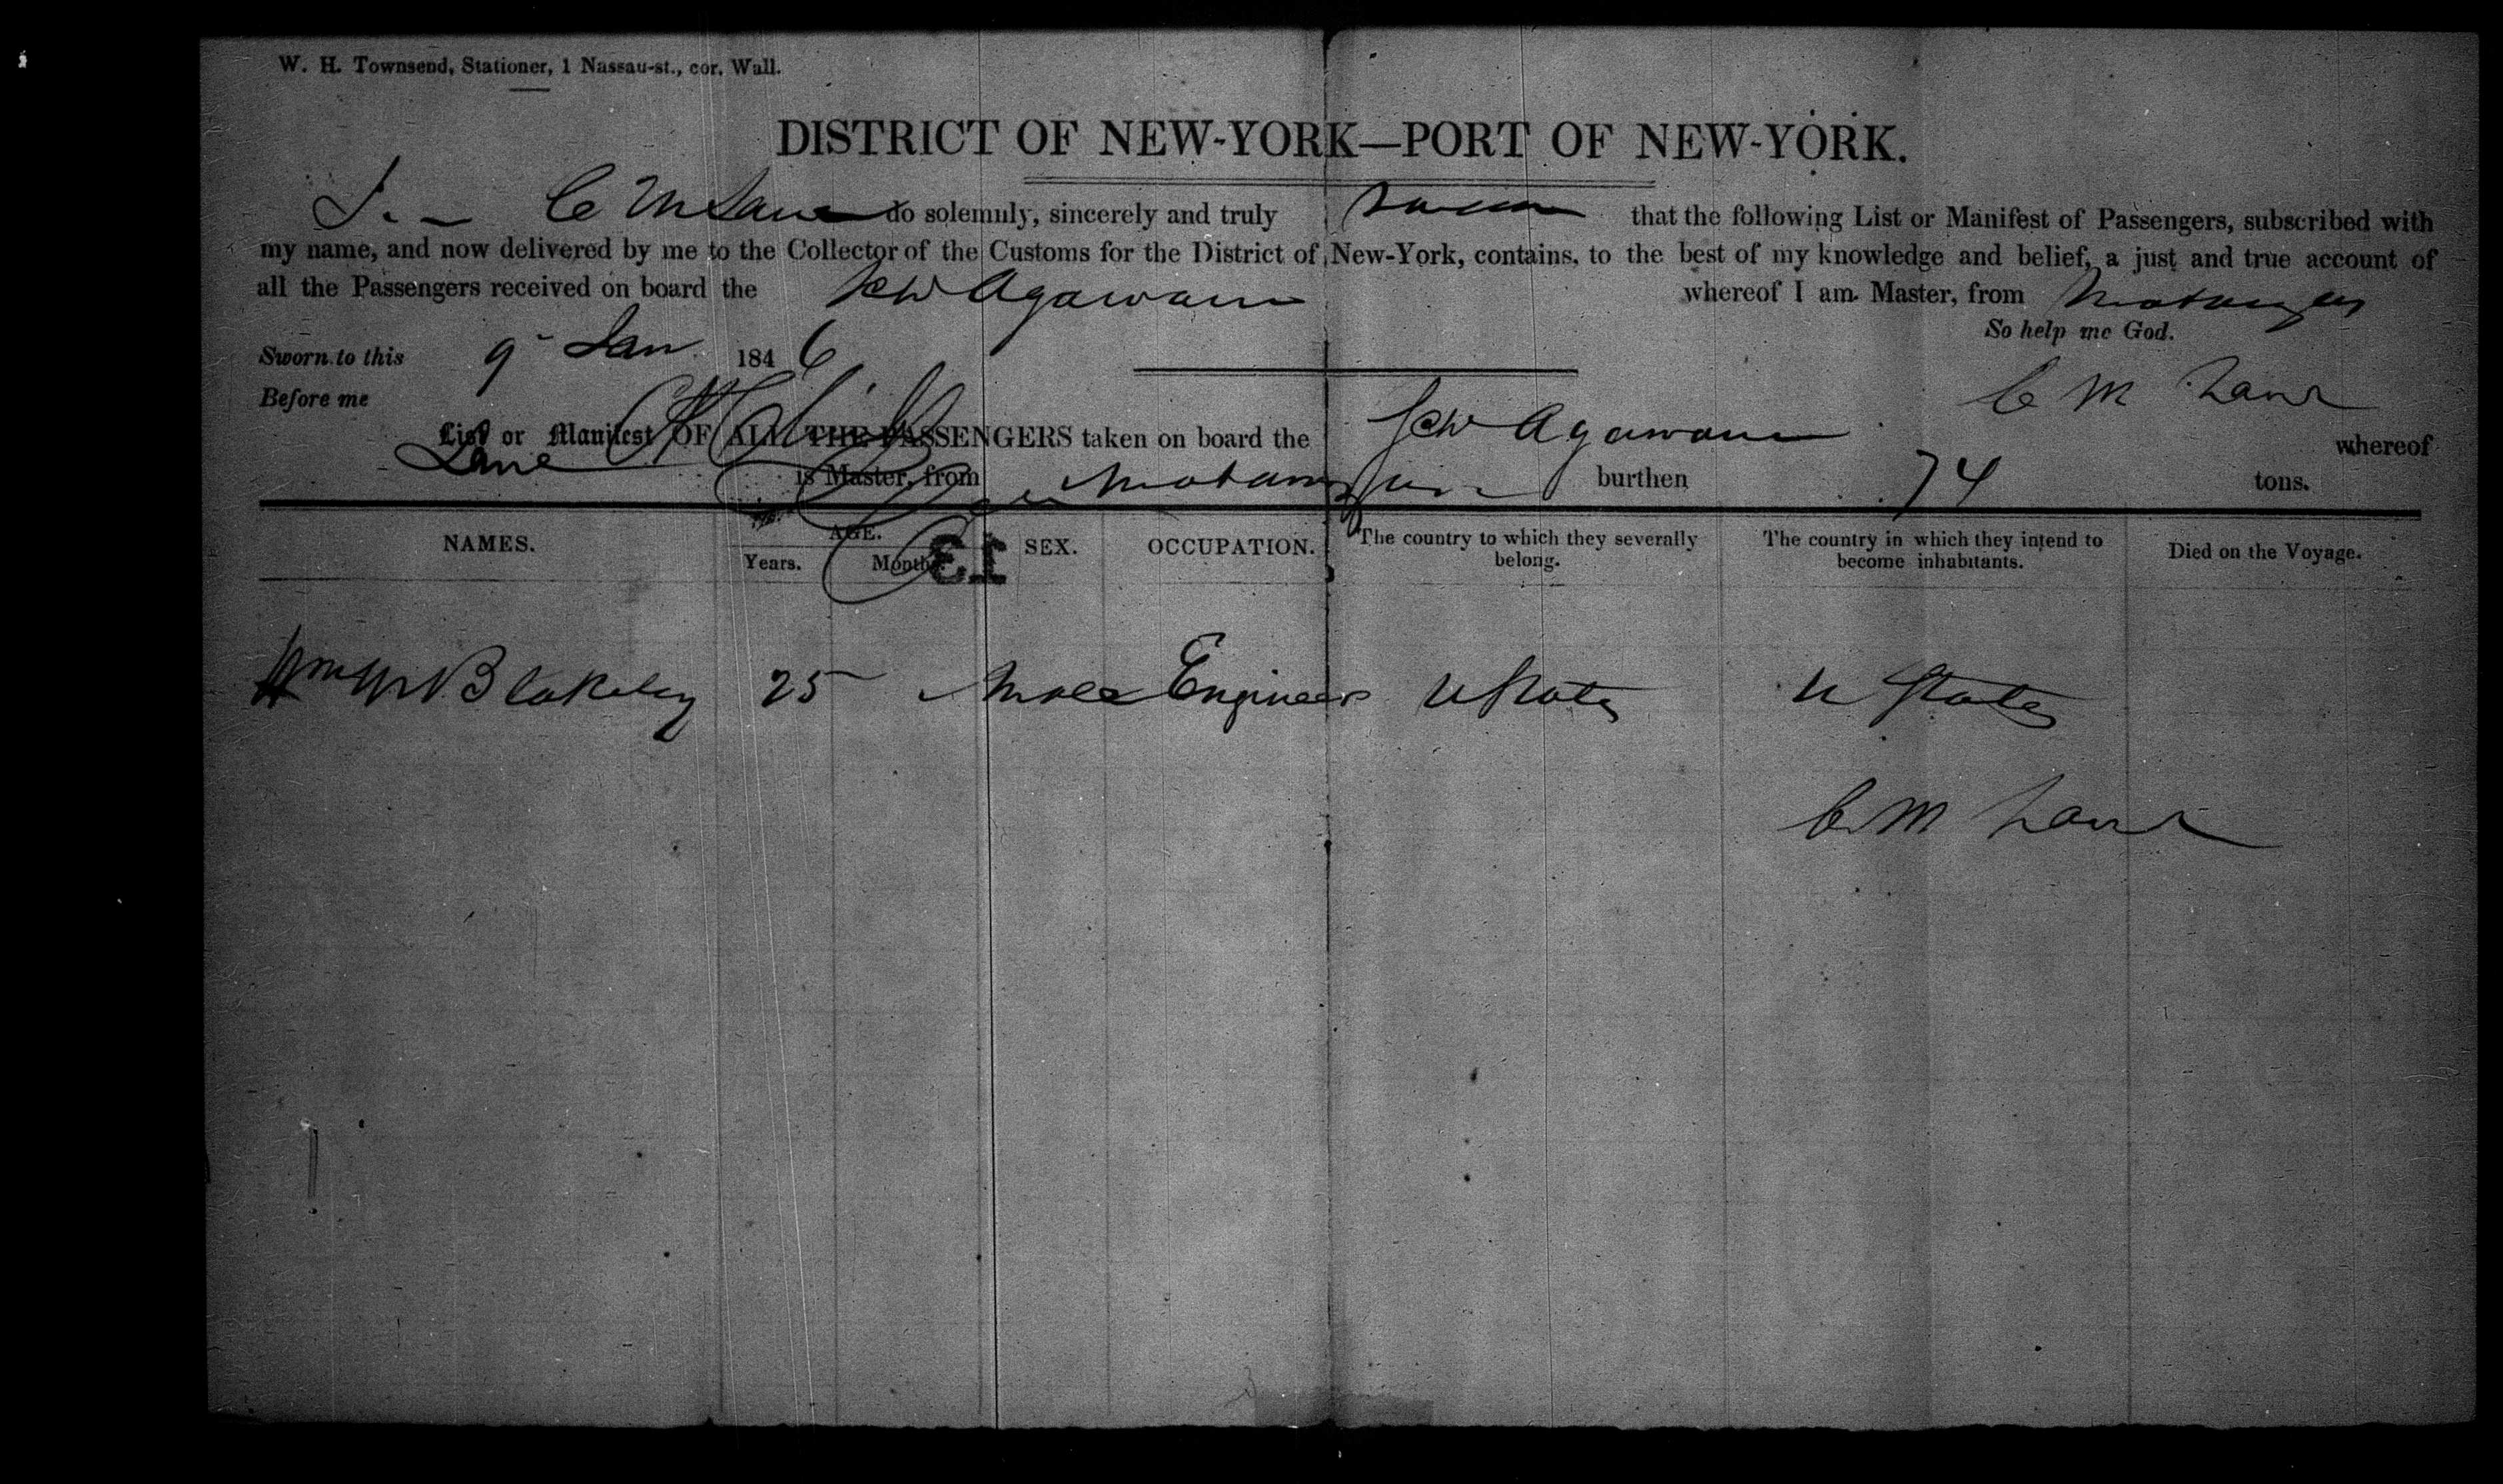 W. H. Townsend, Stationer, 1 Nassau-st., cor. Wall.
DISTRICT OF NEW-YORK—PORT OF NEW-YORK.
I. C M Lane do solemnly, sincerely and truly swear that the following List or Manifest of Passengers, subscribed with
my name, and now delivered by me to the Collector of the Customs for the District of New-York, contains, to the best of my knowledge and belief, a just and true account of
all the Passengers received on board the Schr Agawam whereof I am Master, from Matanzas
So help me God.
Sworn to this 9 Jan 1846
Before me C M Lane
List or Manifest OF ALL THE PASSENGERS taken on board the Schr Agawam whereof
Lane is Master, from Matanzas burthen 74 tons.
NAMES. AGE. SEX. OCCUPATION. The country to which they severally belong. The country in which they intend to become inhabitants. Died on the Voyage.
Years. Months. 13
Wm Blakeley 25 Male Engineer U States U States
C M Lane